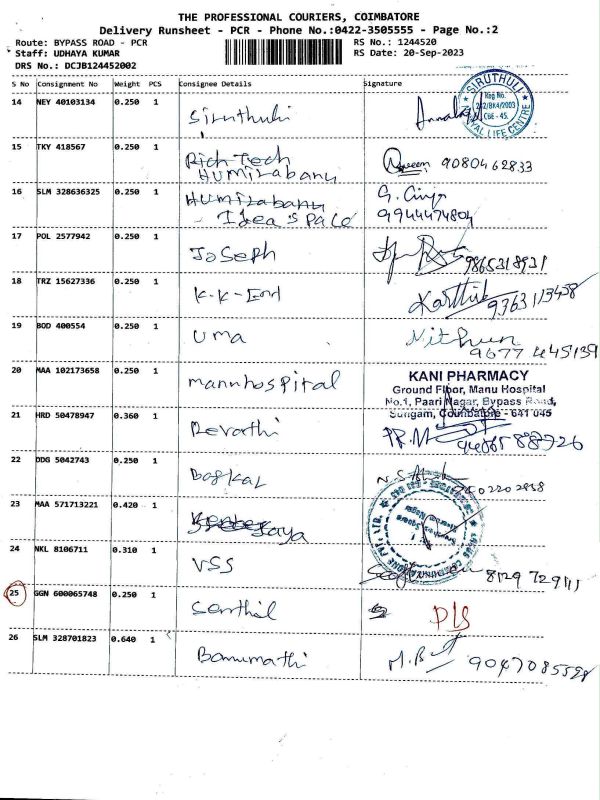 THE PROFESSIONAL COURIERS, COIMBATORE
Delivery Runsheet - PCR - Phone No.:0422-3505555 - Page No.:2
Route: BYPASS ROAD - PCR
RS No.: 1244520
Staff: UDHAYA KUMAR
RS Date: 20-Sep-2023
DRS No.: DCJB124452002
S No Consignment No Weight PCS Consignee Details Signature
14 NEY 40103134 0.250 1 Siruthuli
SIRUTHULI
Reg No.
CBE - 45.
LIFE CENTRE
15 TKY 418567 0.250 1 Rich Tech 9080462833
Humirabanu
16 SLM 328636325 0.250 1 Humirabanu
Idea space 9944474804
17 POL 2577942 0.250 1 Joseph 9865318931
18 TRZ 15627336 0.250 1 K.K-End Karthik 9363113458
19 BOD 400554 0.250 1 Uma Nithun
9677445139
20 MAA 102173658 0.250 1 mannhospital
KANI PHARMACY
Ground Floor, Manu Hospital
No.1, Paari Nagar, Bypass Road,
Sungam, Coimbatore - 641 045
21 HRD 50478947 0.360 1 Revathi
22 DDG 5042743 0.250 1 Baskar
23 MAA 571713221 0.420 1 Jaya
24 NKL 8106711 0.310 1 VSS
25 GGN 600065748 0.250 1 Senthil D/S
26 SLM 328701823 0.640 1 Banumathi M.B